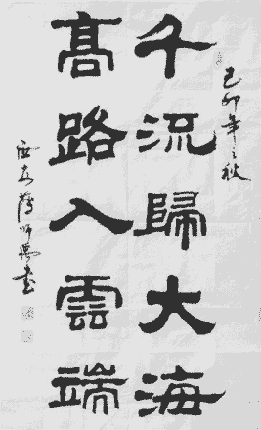 己卯年之秋
千流歸大海
高路入雲端